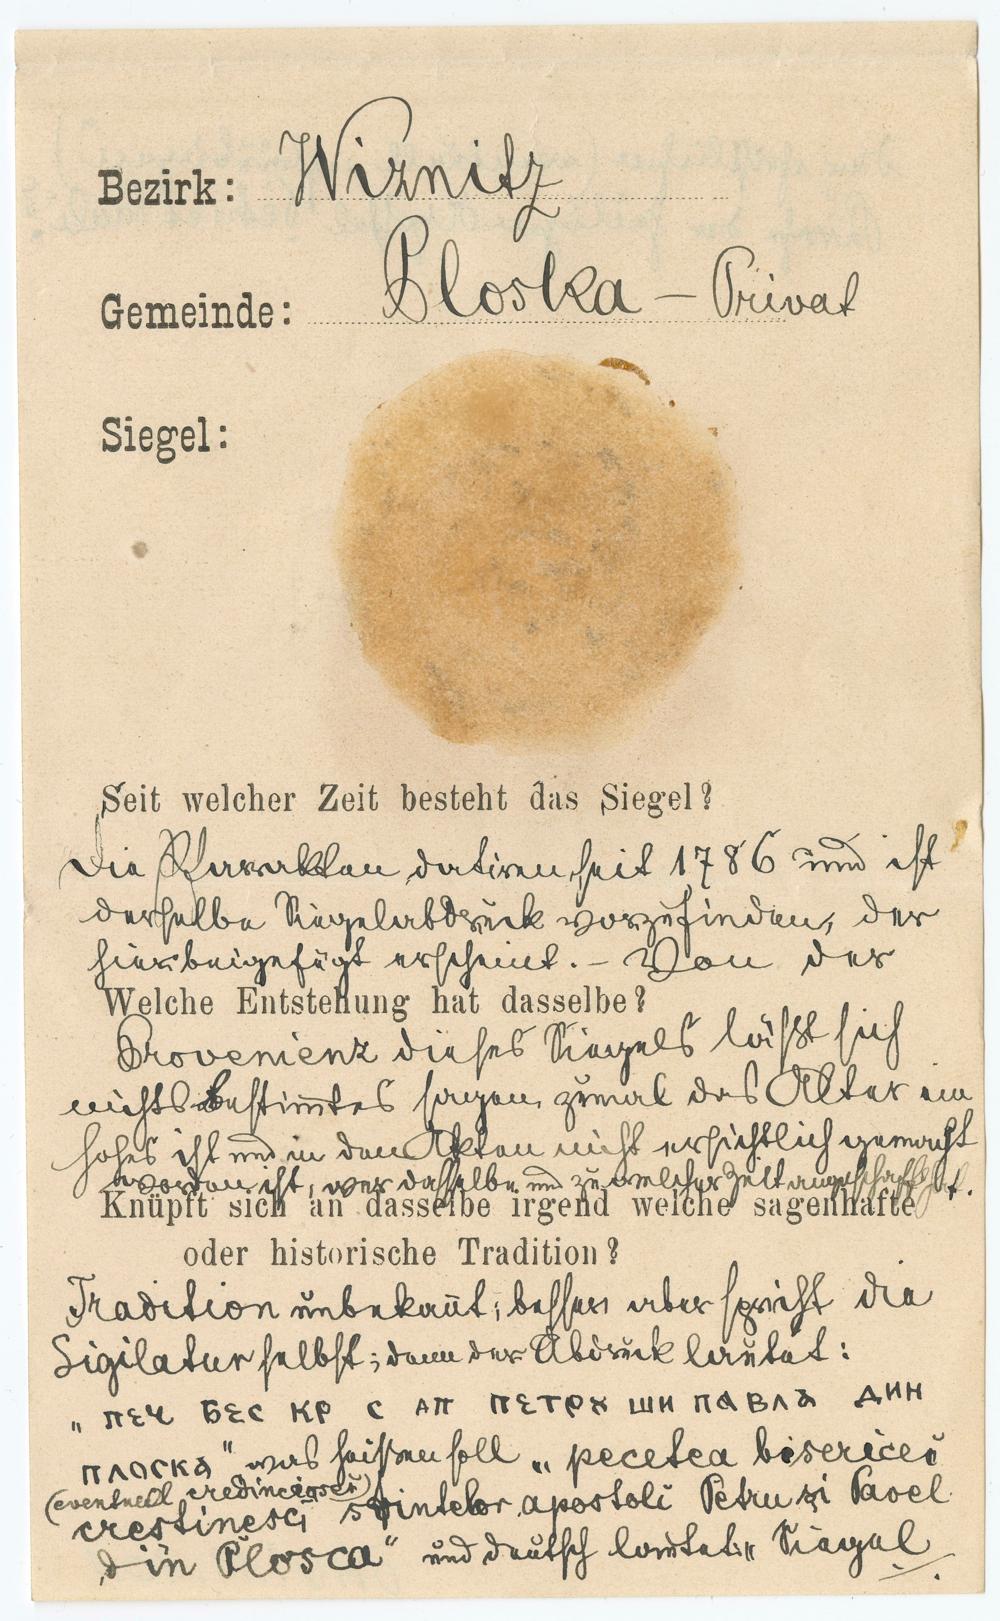 Bezirk: Wiznitz
Gemeinde: Ploska – Privat
Siegel:
Seit welcher Zeit besteht das Siegel?
Die Pfarrakten datiren seit 1786 und ist
derselbe Siegelabdruck vorzufinden, der
hier beigefügt erscheint. – Von der
Welche Entstehung hat dasselbe?
Provenienz dieses Siegels läßt sich
nichts Bestimtes sagen, zumal das Alter ein
hohes ist und in den Akten nicht ersichtlich gemacht
worden ist, wer dasselbe und zu welcher Zeit angeschafft hat.
Knüpft sich an dasselbe irgend welche sagenhafte
oder historische Tradition?
Tradition unbekañt; besser aber spricht die
Sigilatur selbst; denn der Abdruck lautet:
„ ПЕЧ БЕС КР С АП ПЕТРꙊ ШИ ПАВЛЪ ДИН
ПЛОСКА" was heißen soll „ pecetea bisericei
(eventuell credincioseĭ)
crestinesci sfintelor apostoli Petru și Pavel
din Plosca" und deutsch lautet: „ Siegel ./.